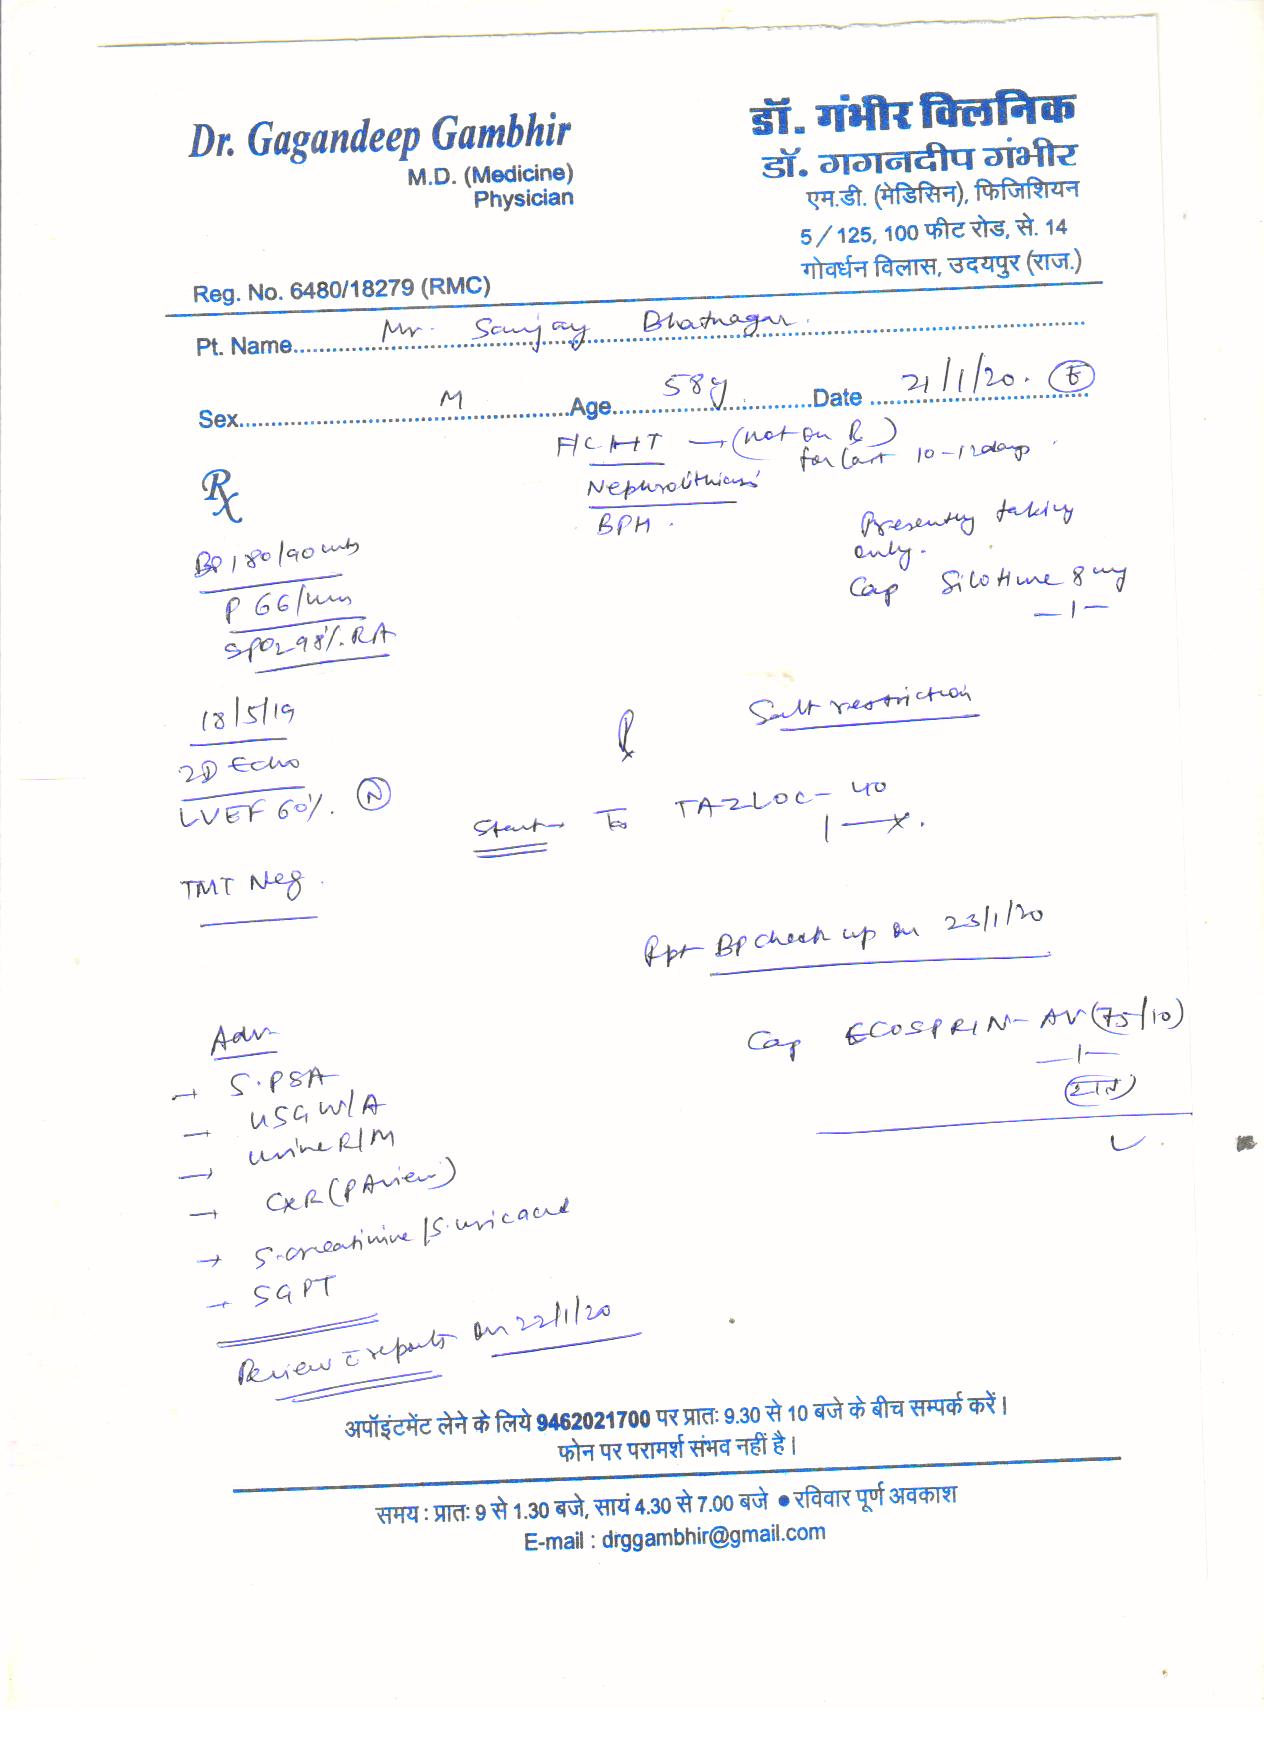 Dr. Gagandeep Gambhir
M.D. (Medicine)
Physician
Reg. No. 6480/18279 (RMC)
डॉ. गंभीर क्लिनिक
डॉ. गगनदीप गंभीर
एम.डी. (मेडिसिन), फिजिशियन
5 / 125, 100 फीट रोड, से. 14
गोवर्धन विलास, उदयपुर (राज.)
Pt. Name Mr. Sanjay Bhatnagar
Sex M Age 58y Date 21/1/20. E
F/C HT → (not on R)
for last 10-12 days
Nephrolithiasis
BPH
Rx
Presently taking
only.
Cap Silotime 8 mg
— 1 —
BP 180/90
P 66/min
SPO2 98% RA
18/5/19
2D Echo
LVEF 60% N
TMT Neg.
Rx
Salt restriction
Start TAZLOC - 40
1 — x.
Rpt BP check up on 23/1/20
Cap ECOSPRIN-AV (75/10)
— 1 —
Adv
→ S.PSA
→ USG W/A
→ Urine R/M
→ CXR (PA view)
→ S.creatinine / S.uric acid
→ SGPT
Review c reports on 22/1/20
अपॉइंटमेंट लेने के लिये 9462021700 पर प्रातः 9.30 से 10 बजे के बीच सम्पर्क करें।
फोन पर परामर्श संभव नहीं है।
समय : प्रातः 9 से 1.30 बजे, सायं 4.30 से 7.00 बजे ● रविवार पूर्ण अवकाश
E-mail : drggambhir@gmail.com